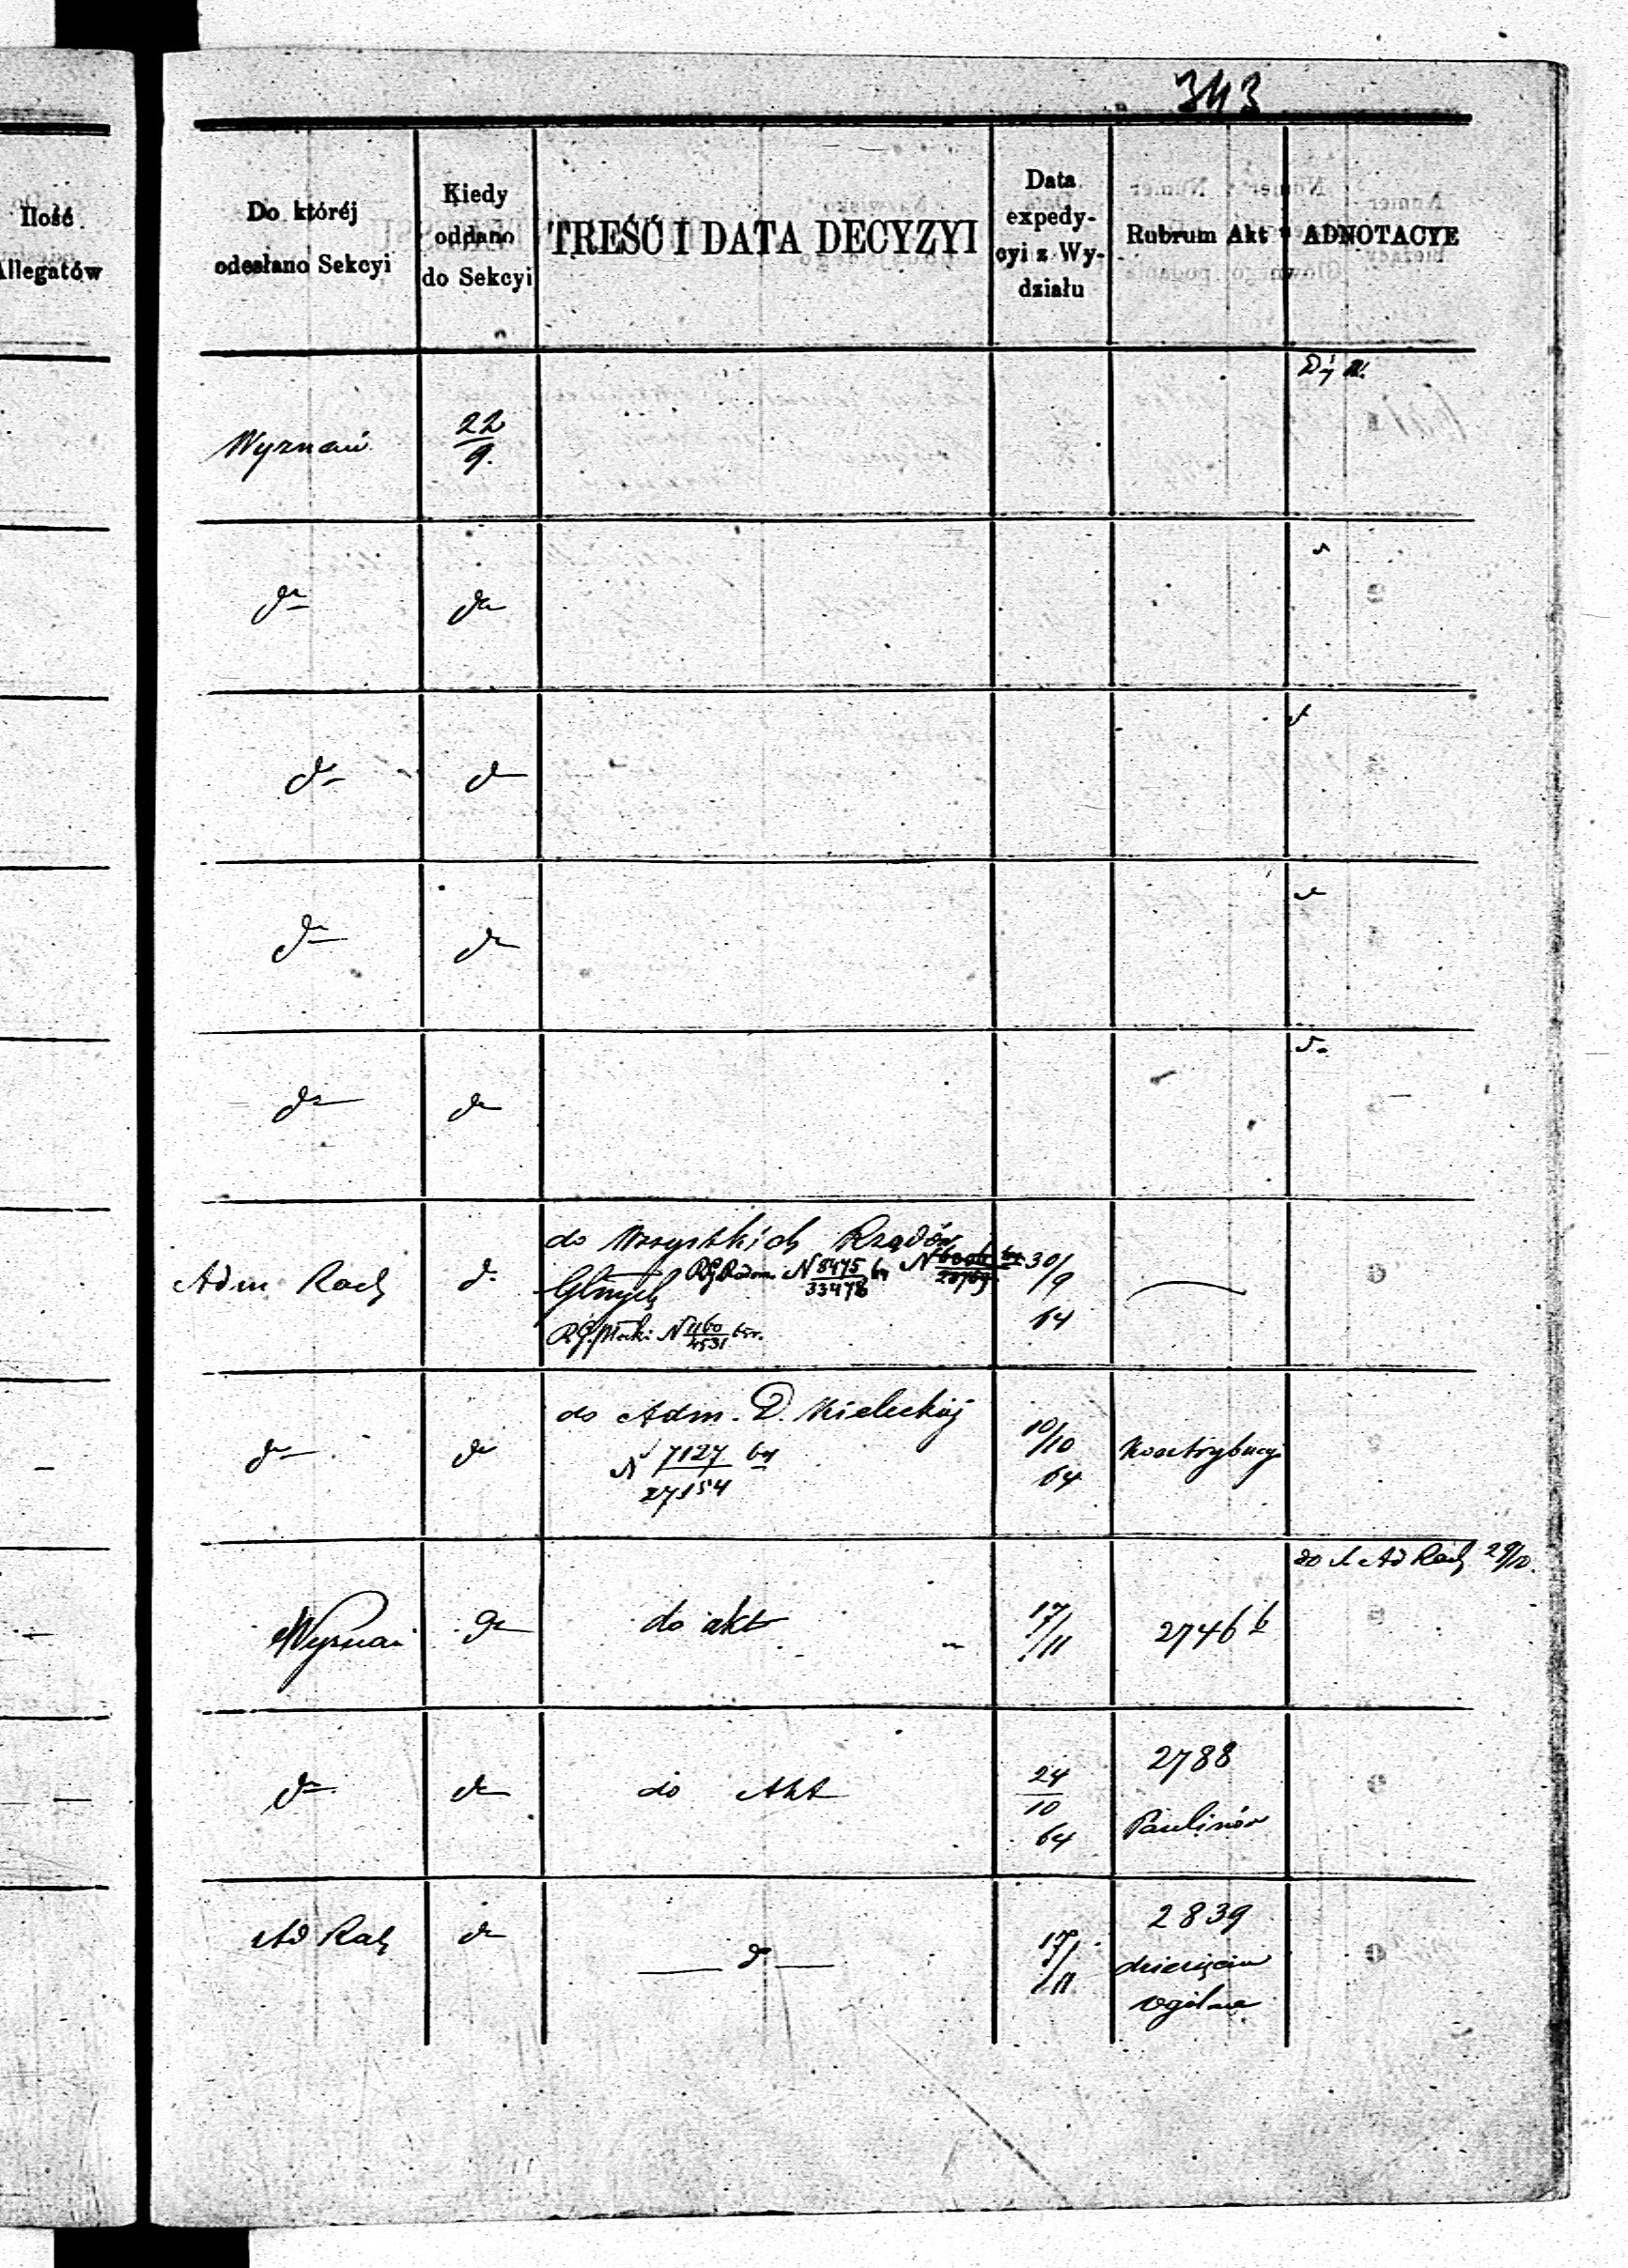 343
Ilość
Allegatów
Do któréj
odesłano Sekcyi
Kiedy
oddano
do Sekcyi
TREŚĆ I DATA DECYZYI
Data
expedy-
cyi z Wy-
działu
Rubrum Akt
ADNOTACYE
Wyznań
22
9
do
do
do
do
do
do
do
do
Adm Rach
do
do Wszystkich Rządów
Głnych
RG Radom. N 8475
33478
RG. Płocki N 460
4531
30/9
64
do
do
do Adm. D. Kieleckiéj
N 7127
27154
10/10
64
Kontrybucyi
do Ad Rach 29/10.
Wyznań
do
do akt
17/11
2746 b
do
do
do Akt
24
10
64
2788
Paulinów
Ad Rach
do
do
17/11
2839
ogólne